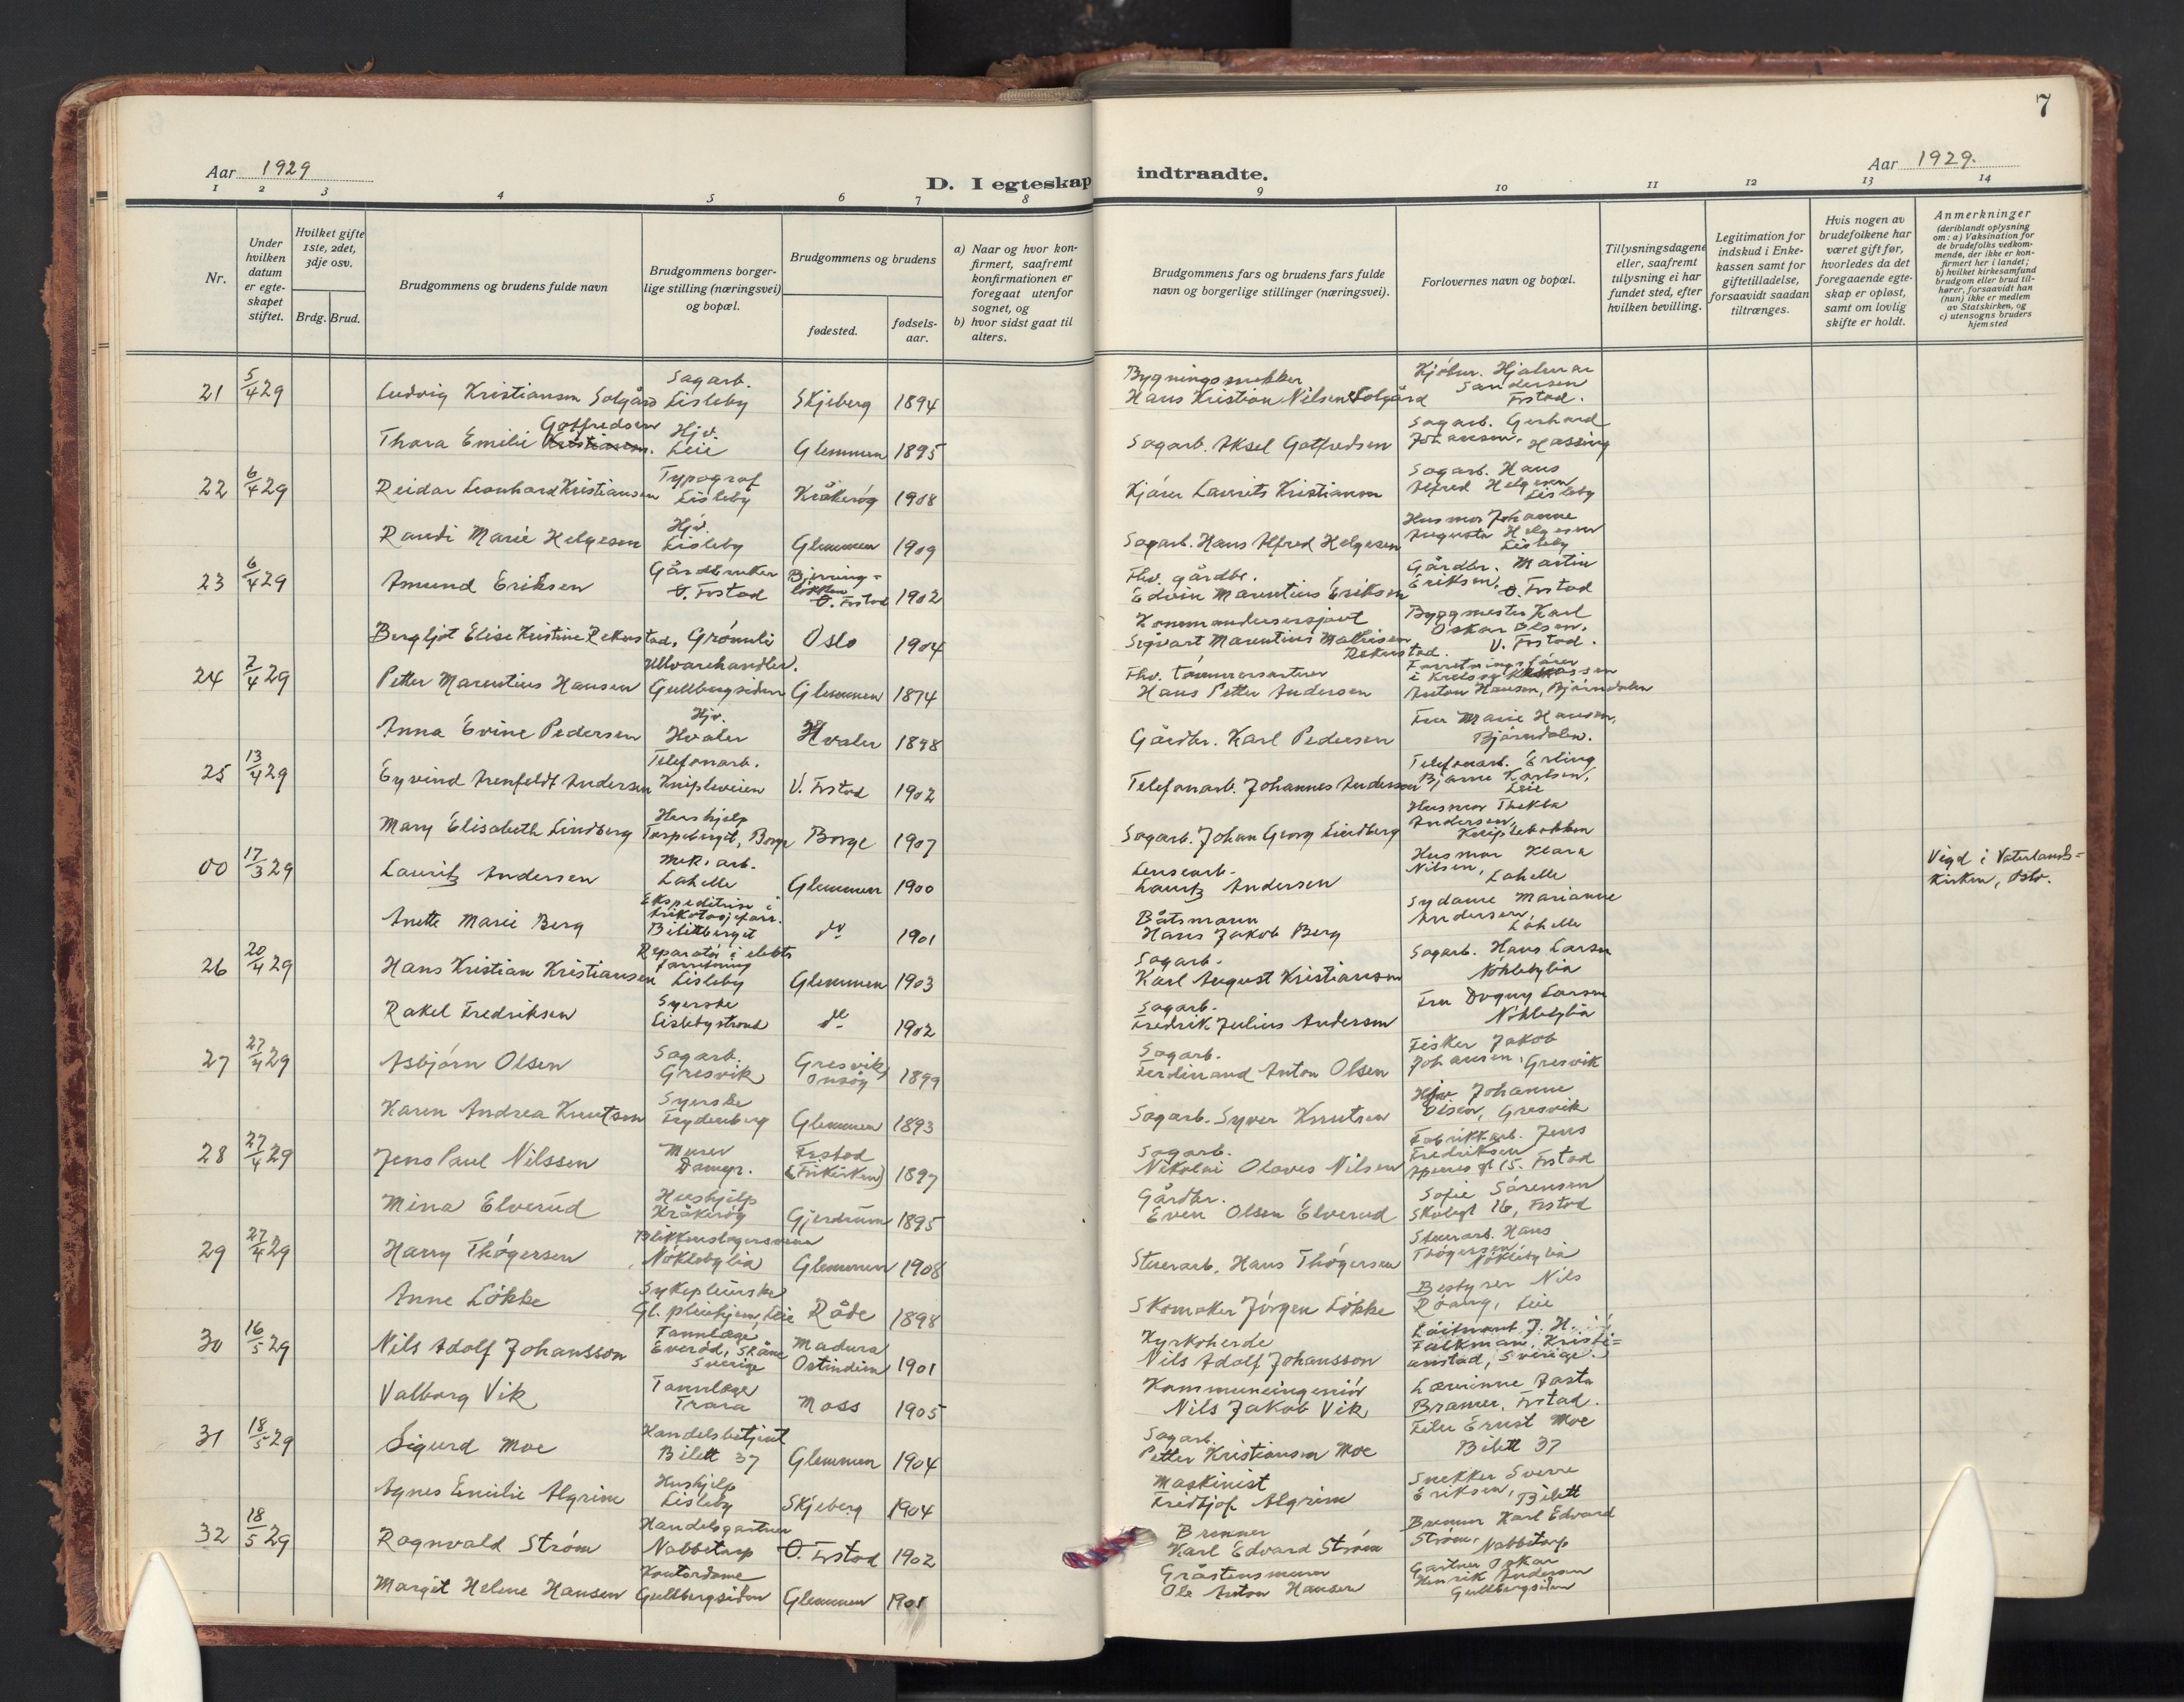 7
Aar 1929
D. I egteskap indtraadte.
Aar 1929.
1 2 3 4 5 6 7 8 9 10 11 12 13 14
Nr.
Under hvilken datum er egteskapet stiftet.
Hvilket gifte 1ste, 2det, 3dje osv.
Brdg. Brud.
Brudgommens og brudens fulde navn
Brudgommens borgerlige stilling (næringsvei) og bopæl.
Brudgommens og brudens
fødested.
fødselsaar.
a) Naar og hvor konfirmert, saafremt konfirmationen er foregaat utenfor sognet, og
b) hvor sidst gaat til alters.
Brudgommens fars og brudens fars fulde navn og borgerlige stillinger (næringsvei).
Forlovernes navn og bopæl.
Tillysningsdagene eller, saafremt tillysning ei har fundet sted, efter hvilken bevilling.
Legitimation for indskud i Enkekassen samt for giftetilladelse, forsaavidt saadan tiltrænges.
Hvis nogen av brudefolkene har været gift før, hvorledes da det foregaaende egteskap er opløst, samt om lovlig skifte er holdt.
Anmerkninger (deriblandt oplysning om: a) Vaksination for de brudefolks vedkommende, der ikke er konfirmert her i landet; b) hvilket kirkesamfund brudgom eller brud tilhører, forsaavidt han (hun) ikke er medlem av Statskirken, og c) utensogns bruders hjemsted
21 5/4 29 Ludvig Kristiansen Solgård Sagarb. Lisleby Skjeberg 1894 Bygningssnekker Hans Kristian Nilsen Solgård Kjöbm. Hjalmar Sandersen Frstad.
Thora Emilie Kristiansen. Gotfredsen Hjv. Leie Glemmen 1895 Sagarb. Aksel Gotfredsen Sagarb. Gerhard Johansen, Hassing
22 6/4 29 Reidar Leonhard Kristiansen Typograf Lisleby Kråkeröy 1908 Kjörer Laurits Kristiansen Sagarb. Hans Alfred Helgesen Lisleby
Randi Marie Helgesen Hjv. Lisleby Glemmen 1909 Sagarb. Hans Alfred Helgesen Husmor Johanne Augusta Helgesen Lisleby
23 6/4 29 Amund Eriksen Gårdbruker Ö. Frstad Bjerninglökken Ö. Frstad 1902 Fhv. gårdbr. Edvin Marentius Eriksen Gårdbr. Martin Eriksen, Ö. Frstad
Bergljot Elise Kristine Rekustad, Grömli Oslo 1904 Kommandersersjant Sigvart Marentius Mathisen Rekustad. Byggmester Karl Oskar Olsen, V. Frstad.
24 7/4 29 Petter Marentius Hansen Ullvarehandler. Gullbergsiden Glemmen 1874 Fhv. tömmersorterer Hans Petter Andersen Forretningsförer i Kretssykekassen Anton Hansen, Björndalen
Anna Evine Pedersen Hjv. Hvaler Hvaler 1898 Gårdbr. Karl Pedersen Fru Marie Hansen, Björndalen.
25 13/4 29 Eyvind Arenfeldt Andersen Telefonarb. Knipleveien V. Frstad 1902 Telefonarb. Johannes Andersen Telefonarb. Erling Bjarne Karlsen, Leie
Mary Elisabeth Lindberg Hushjelp Torpeberget, Borge Borge 1907 Sagarb. Johan Georg Lindberg Husmor Thekla Andersen, Kniplebakken
00 17/3 29 Lauritz Andersen Mek. arb. Lahelle Glemmen 1900 Lensearb. Lauritz Andersen Husmor Klara Nilsen, Lahelle Vigd i Vaterlandskirken, Oslo.
Anette Marie Berg Ekspeditrise i trikotasjeforr. Bilittberget do 1901 Båtsmann Hans Jakob Berg Sydame Marianne Andersen, Lahelle
26 20/4 29 Hans Kristian Kristiansen Reparatör i elektr. forretning Lisleby Glemmen 1903 Sagarb. Karl August Kristiansen Sagarb. Hans Larsen Nöklebylia
Rakel Fredriksen Syerske Lislebystrand do 1902 Sagarb. Fredrik Julius Andersen Fru Dagny Larsen Nöklebylia
27 27/4 29 Asbjörn Olsen Sagarb. Gresvik Gresvik, Onsöy 1899 Sagarb. Ferdinand Anton Olsen Fisker Jakob Johansen, Gresvik
Karen Andrea Knutsen Syerske Frydenberg Glemmen 1893 Sagarb. Syver Knutsen Hjv Johanne Olsen, Gresvik
28 27/4 29 Jens Paul Nilssen Murer Damyr. Frstad (Frikirken) 1897 Sagarb. Nikolai Olaves Nilsen Fabrikkarb. Jens Fredriksen 15. Frstad
Mina Elverud Hushjelp Kråkeröy Gjerdrum 1895 Gårdbr. Even Olsen Elverud Sofie Sörensen Skolegt 16, Frstad
29 27/4 29 Harry Thögersen Blikkenslagersvenn Nöklebylia Glemmen 1908 Steinarb. Hans Thögersen Steinarb. Hans Thögersen, Nöklebylia
Anne Lökke Sykepleierske Gl. pleiehjem, Leie Råde 1898 Skomaker Jörgen Lökke Bestyrer Nils Röberg, Leie
30 16/5 29 Nils Adolf Johansson Tannlæge Everöd, Skåne Sverige Madura Ostindien 1901 Kyrkoherde Nils Adolf Johansson Löitnant J. H. Falkman, Kristianstad, Sverige.
Valborg Vik Tannlæge Trara Moss 1905 Kommuneingeniör Nils Jakob Vik Lavrinne Jasta Bramer, Frstad.
31 18/5 29 Sigurd Moe Handelsbetjent Bilett 37 Glemmen 1904 Sagarb. Petter Kristiansen Moe Filer Ernst Moe Bilett 37
Agnes Emilie Algrim Hushjelp Lisleby Skjeberg 1904 Maskinist Fredtjof Algrim Snekker Sverre Eriksen, Bilett
32 18/5 29 Ragnvald Ström Handelsgartner Nabbetorp Ö. Frstad 1902 Brenner Karl Edvard Ström Brenner Karl Edvard Ström, Nabbetorp
Margit Helene Hansen Kontordame Gullbergsiden Glemmen 1901 Gråstensmurer Ole Anton Hansen Gartner Oskar Henrik Andersen Gullbergsiden